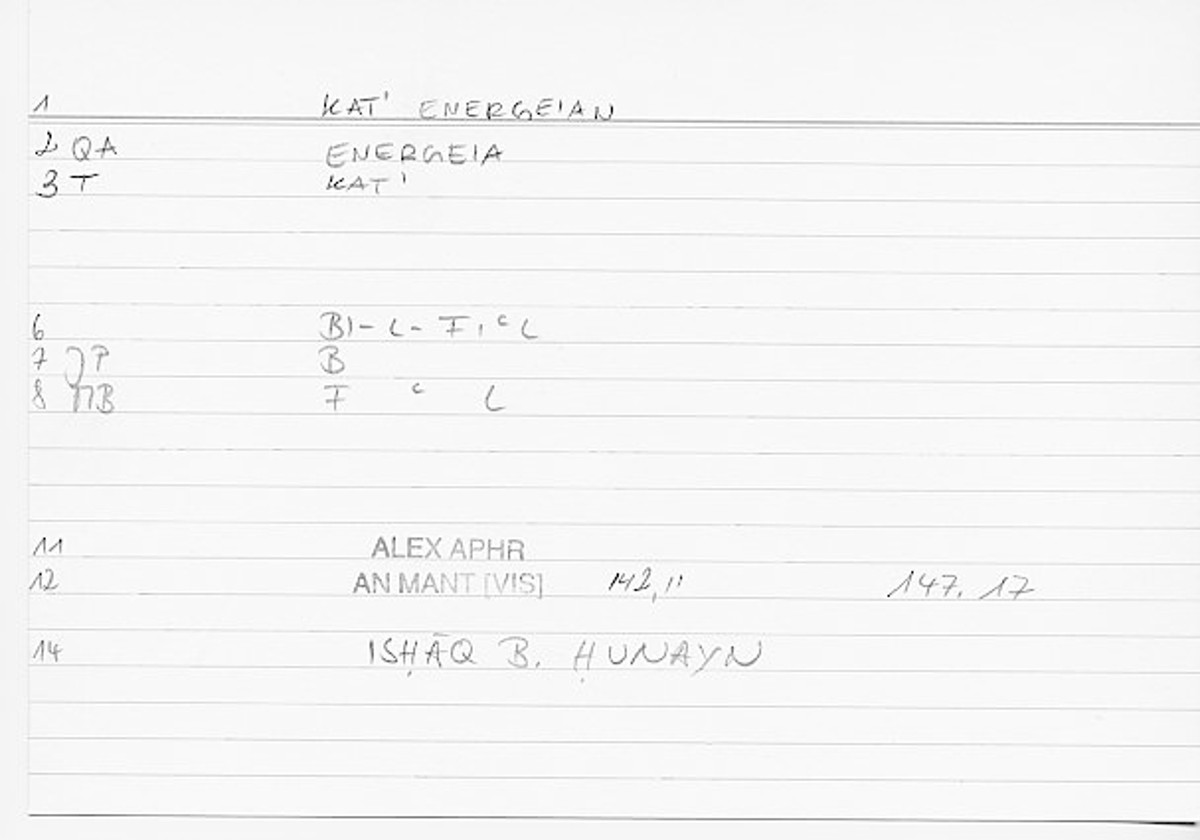 1 KAT' ENERGEIAN
2 QA ENERGEIA
3 T KAT'
6 BI-L-FIʿL
7 JP B
8 NB F ʿ L
11 ALEX APHR
12 AN MANT [VIS] 142,11 147.17
14 ISḤĀQ B. ḤUNAYN